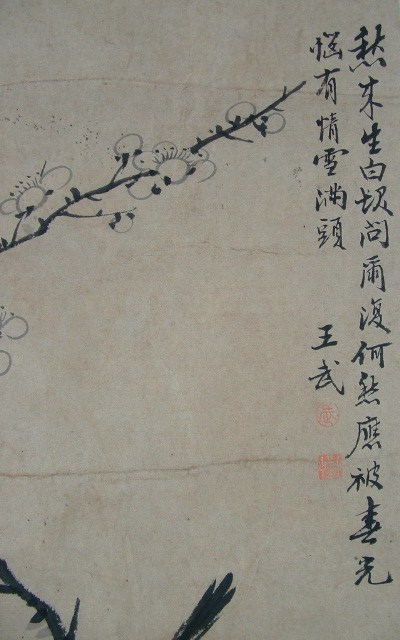 愁来生白髮問爾復何愁應被春光
惱有情雪滿頭
王武